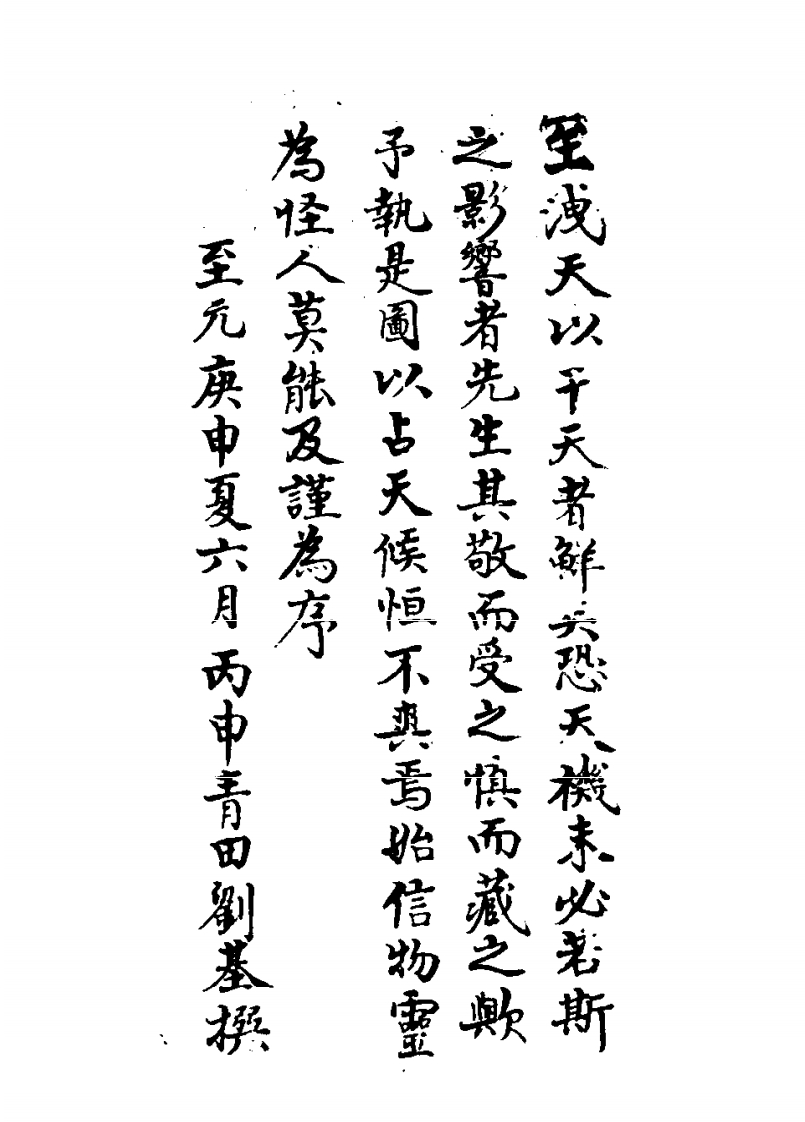 至洩天以干天者鮮矣恐天機未必若斯
之影響者先生其敬而受之慎而藏之歟
予執是圖以占天候恒不爽焉始信物靈
為怪人莫能及謹為序
至元庚申夏六月丙申青田劉基撰